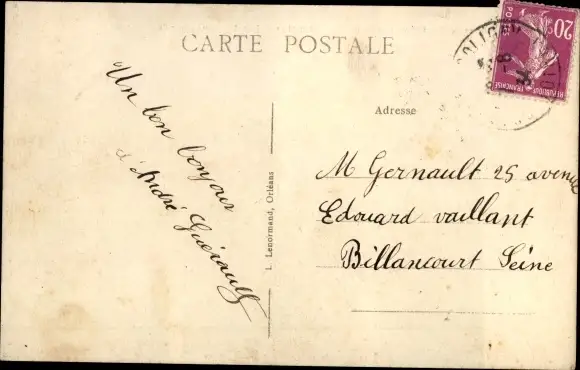 CARTE POSTALE
Un bon bonjour
d'André Guérault
L. Lenormand, Orléans
Adresse
M Gernault 25 avenue
Edouard vaillant
Billancourt Seine
20c
POSTES
REPUBLIQUE FRANÇAISE